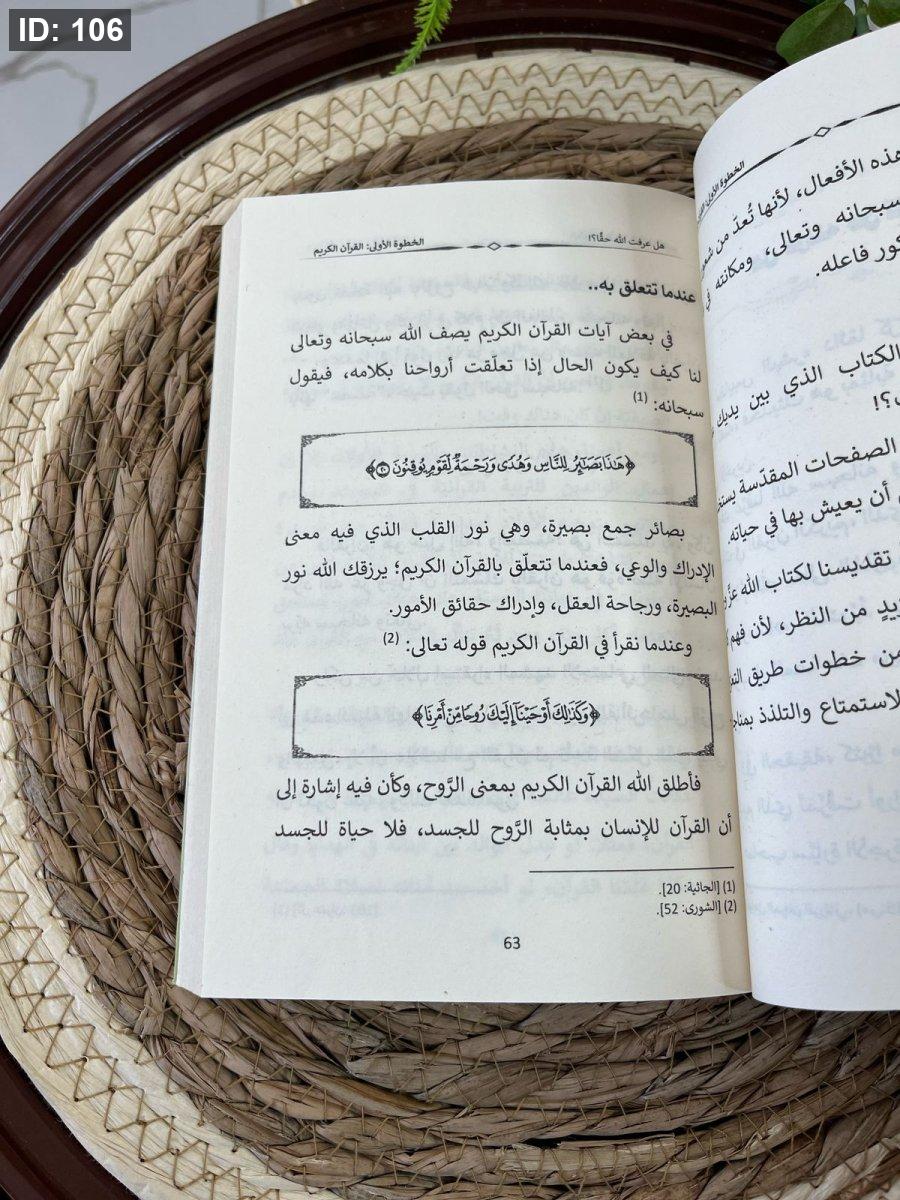 ID: 106
هل عرفت الله حقًا؟!
الخطوة الأولى: القرآن الكريم
عندما تتعلق به..
في بعض آيات القرآن الكريم يصف الله سبحانه وتعالى
لنا كيف يكون الحال إذا تعلّقت أرواحنا بكلامه، فيقول
سبحانه: (1)
﴿هَٰذَا بَصَائِرُ لِلنَّاسِ وَهُدًى وَرَحْمَةٌ لِّقَوْمٍ يُوقِنُونَ ٢٠﴾
بصائر جمع بصيرة، وهي نور القلب الذي فيه معنى
الإدراك والوعي، فعندما تتعلّق بالقرآن الكريم؛ يرزقك الله نور
البصيرة، ورجاحة العقل، وإدراك حقائق الأمور.
وعندما نقرأ في القرآن الكريم قوله تعالى: (2)
﴿وَكَذَٰلِكَ أَوْحَيْنَا إِلَيْكَ رُوحًا مِّنْ أَمْرِنَا﴾
فأطلق الله القرآن الكريم بمعنى الرَّوح، وكأن فيه إشارة إلى
أن القرآن للإنسان بمثابة الرَّوح للجسد، فلا حياة للجسد
(1) [الجاثية: 20].
(2) [الشورى: 52].
63
الخطوة الأولى:
هذه الأفعال، لأنها تُعدّ من
سبحانه وتعالى، ومكانته في
فاعله.
الكتاب الذي بين يديك
الصفحات المقدّسة
أن يعيش بها في حياته
تقديسنا لكتاب الله
من النظر، لأن
من خطوات طريق
الاستمتاع والتلذذ